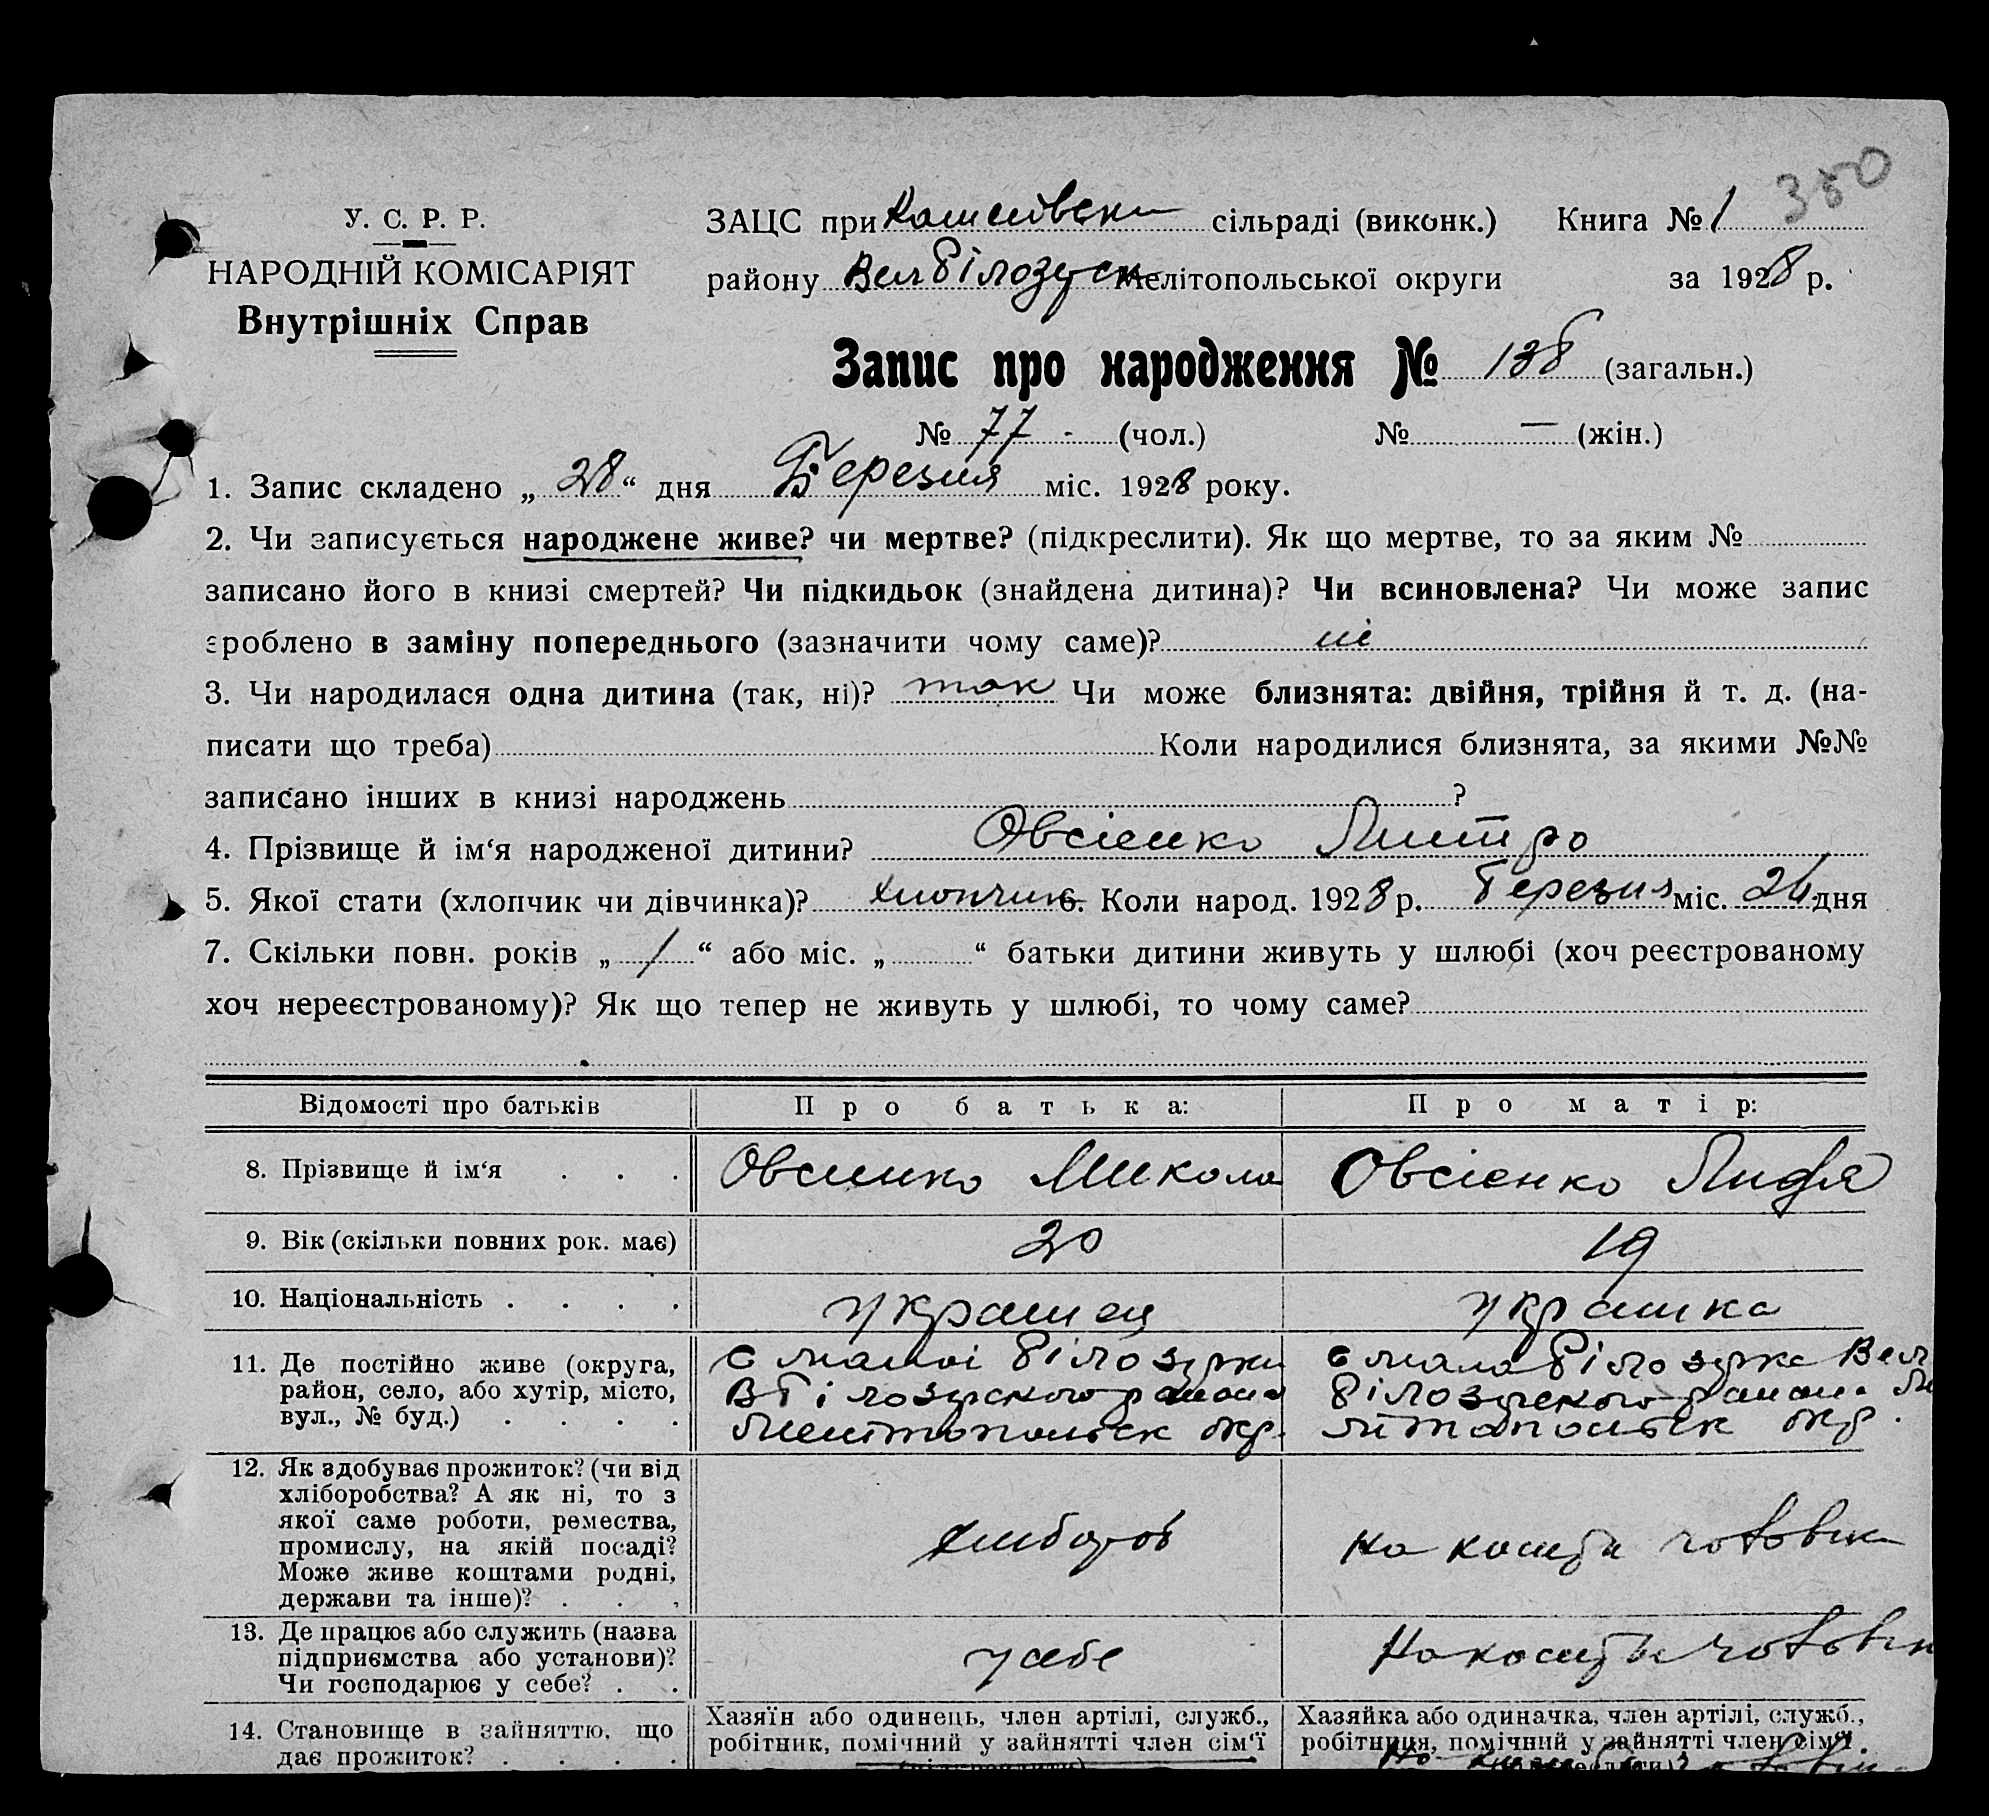 350
У. С. Р. Р.
НАРОДНІЙ КОМІСАРІЯТ
Внутрішніх Справ
ЗАЦС при сільраді (виконк.) Книга № 1
району Вел Білозуск Мелітопольської округи за 1928 р.
Запис про народження № 138 (загальн.)
№ 77 - (чол.) № — (жін.)
1. Запис складено „ 28 “ дня Березня міс. 1928 року.
2. Чи записується народжене живе? чи мертве? (підкреслити). Як що мертве, то за яким №
записано його в книзі смертей? Чи підкидьок (знайдена дитина)? Чи всиновлена? Чи може запис
зроблено в заміну попереднього (зазначити чому саме)? ні
3. Чи народилася одна дитина (так, ні)? так Чи може близнята: двійня, трійня й т. д. (на-
писати що треба) Коли народилися близнята, за якими №№
записано інших в книзі народжень ?
4. Прізвище й ім‘я народженої дитини? Овсієнко Дмитро
5. Якої стати (хлопчик чи дівчинка)? хлопчик 6. Коли народ. 1928 р. Березня міс. 26 дня
7. Скільки повн. років „ 1 “ або міс. „ “ батьки дитини живуть у шлюбі (хоч реєстрованому
хоч нереєстрованому)? Як що тепер не живуть у шлюбі, то чому саме?
Відомості про батьків Про батька: Про матір:
8. Прізвище й ім‘я . . . Овсиенко Микола Овсієнко Лидія
9. Вік (скільки повних рок. має) 20 19
10. Національність . . . . українец українка
11. Де постійно живе (округа, район, село, або хутір, місто, вул., № буд.) . . . .
с малої Білозурки
В Білозурского района
Мелитопольск окр.
с мала Білозурка Вел
Білозурского района Ме
литопольск окр.
12. Як здобуває прожиток? (чи від хліборобства? А як ні, то з якої саме роботи, ремества, промислу, на якій посаді? Може живе коштами родні, держави та інше)? . . .
хлібороб
на кошти чоловіка
13. Де працює або служить (назва підприємства або установи)? Чи господарює у себе? . .
у себе
На кошти чоловік
14. Становище в зайняттю, що дає прожиток? . . . .
Хазяїн або одинець, член артілі, служб., робітник, помічний у зайнятті член сім‘ї
Хазяйка або одиначка, член артілі, служб., робітниця, помічний у зайнятті член сім‘ї